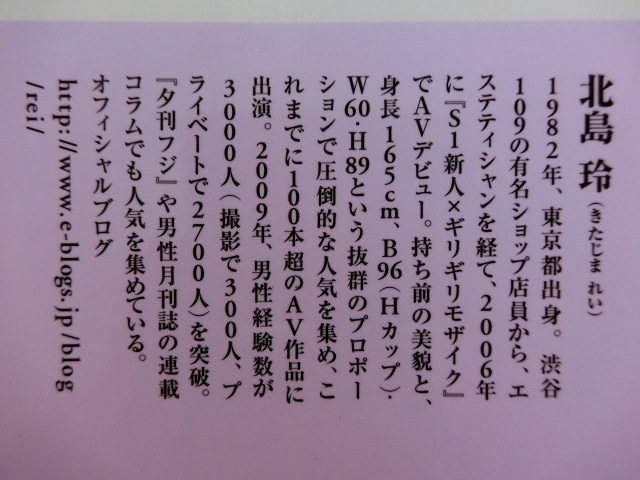 北島 玲（きたじま れい）
1982年、東京都出身。渋谷
109の有名ショップ店員から、エ
ステティシャンを経て、2006年
に『S1新人×ギリギリモザイク』
でAVデビュー。持ち前の美貌と、
身長165cm、B96（Hカップ）・
W60・H89という抜群のプロポー
ションで圧倒的な人気を集め、こ
れまでに100本超のAV作品に
出演。2009年、男性経験数が
3000人（撮影で300人、プ
ライベートで2700人）を突破。
『夕刊フジ』や男性月刊誌の連載
コラムでも人気を集めている。
オフィシャルブログ
http://www.e-blogs.jp/blog
/rei/